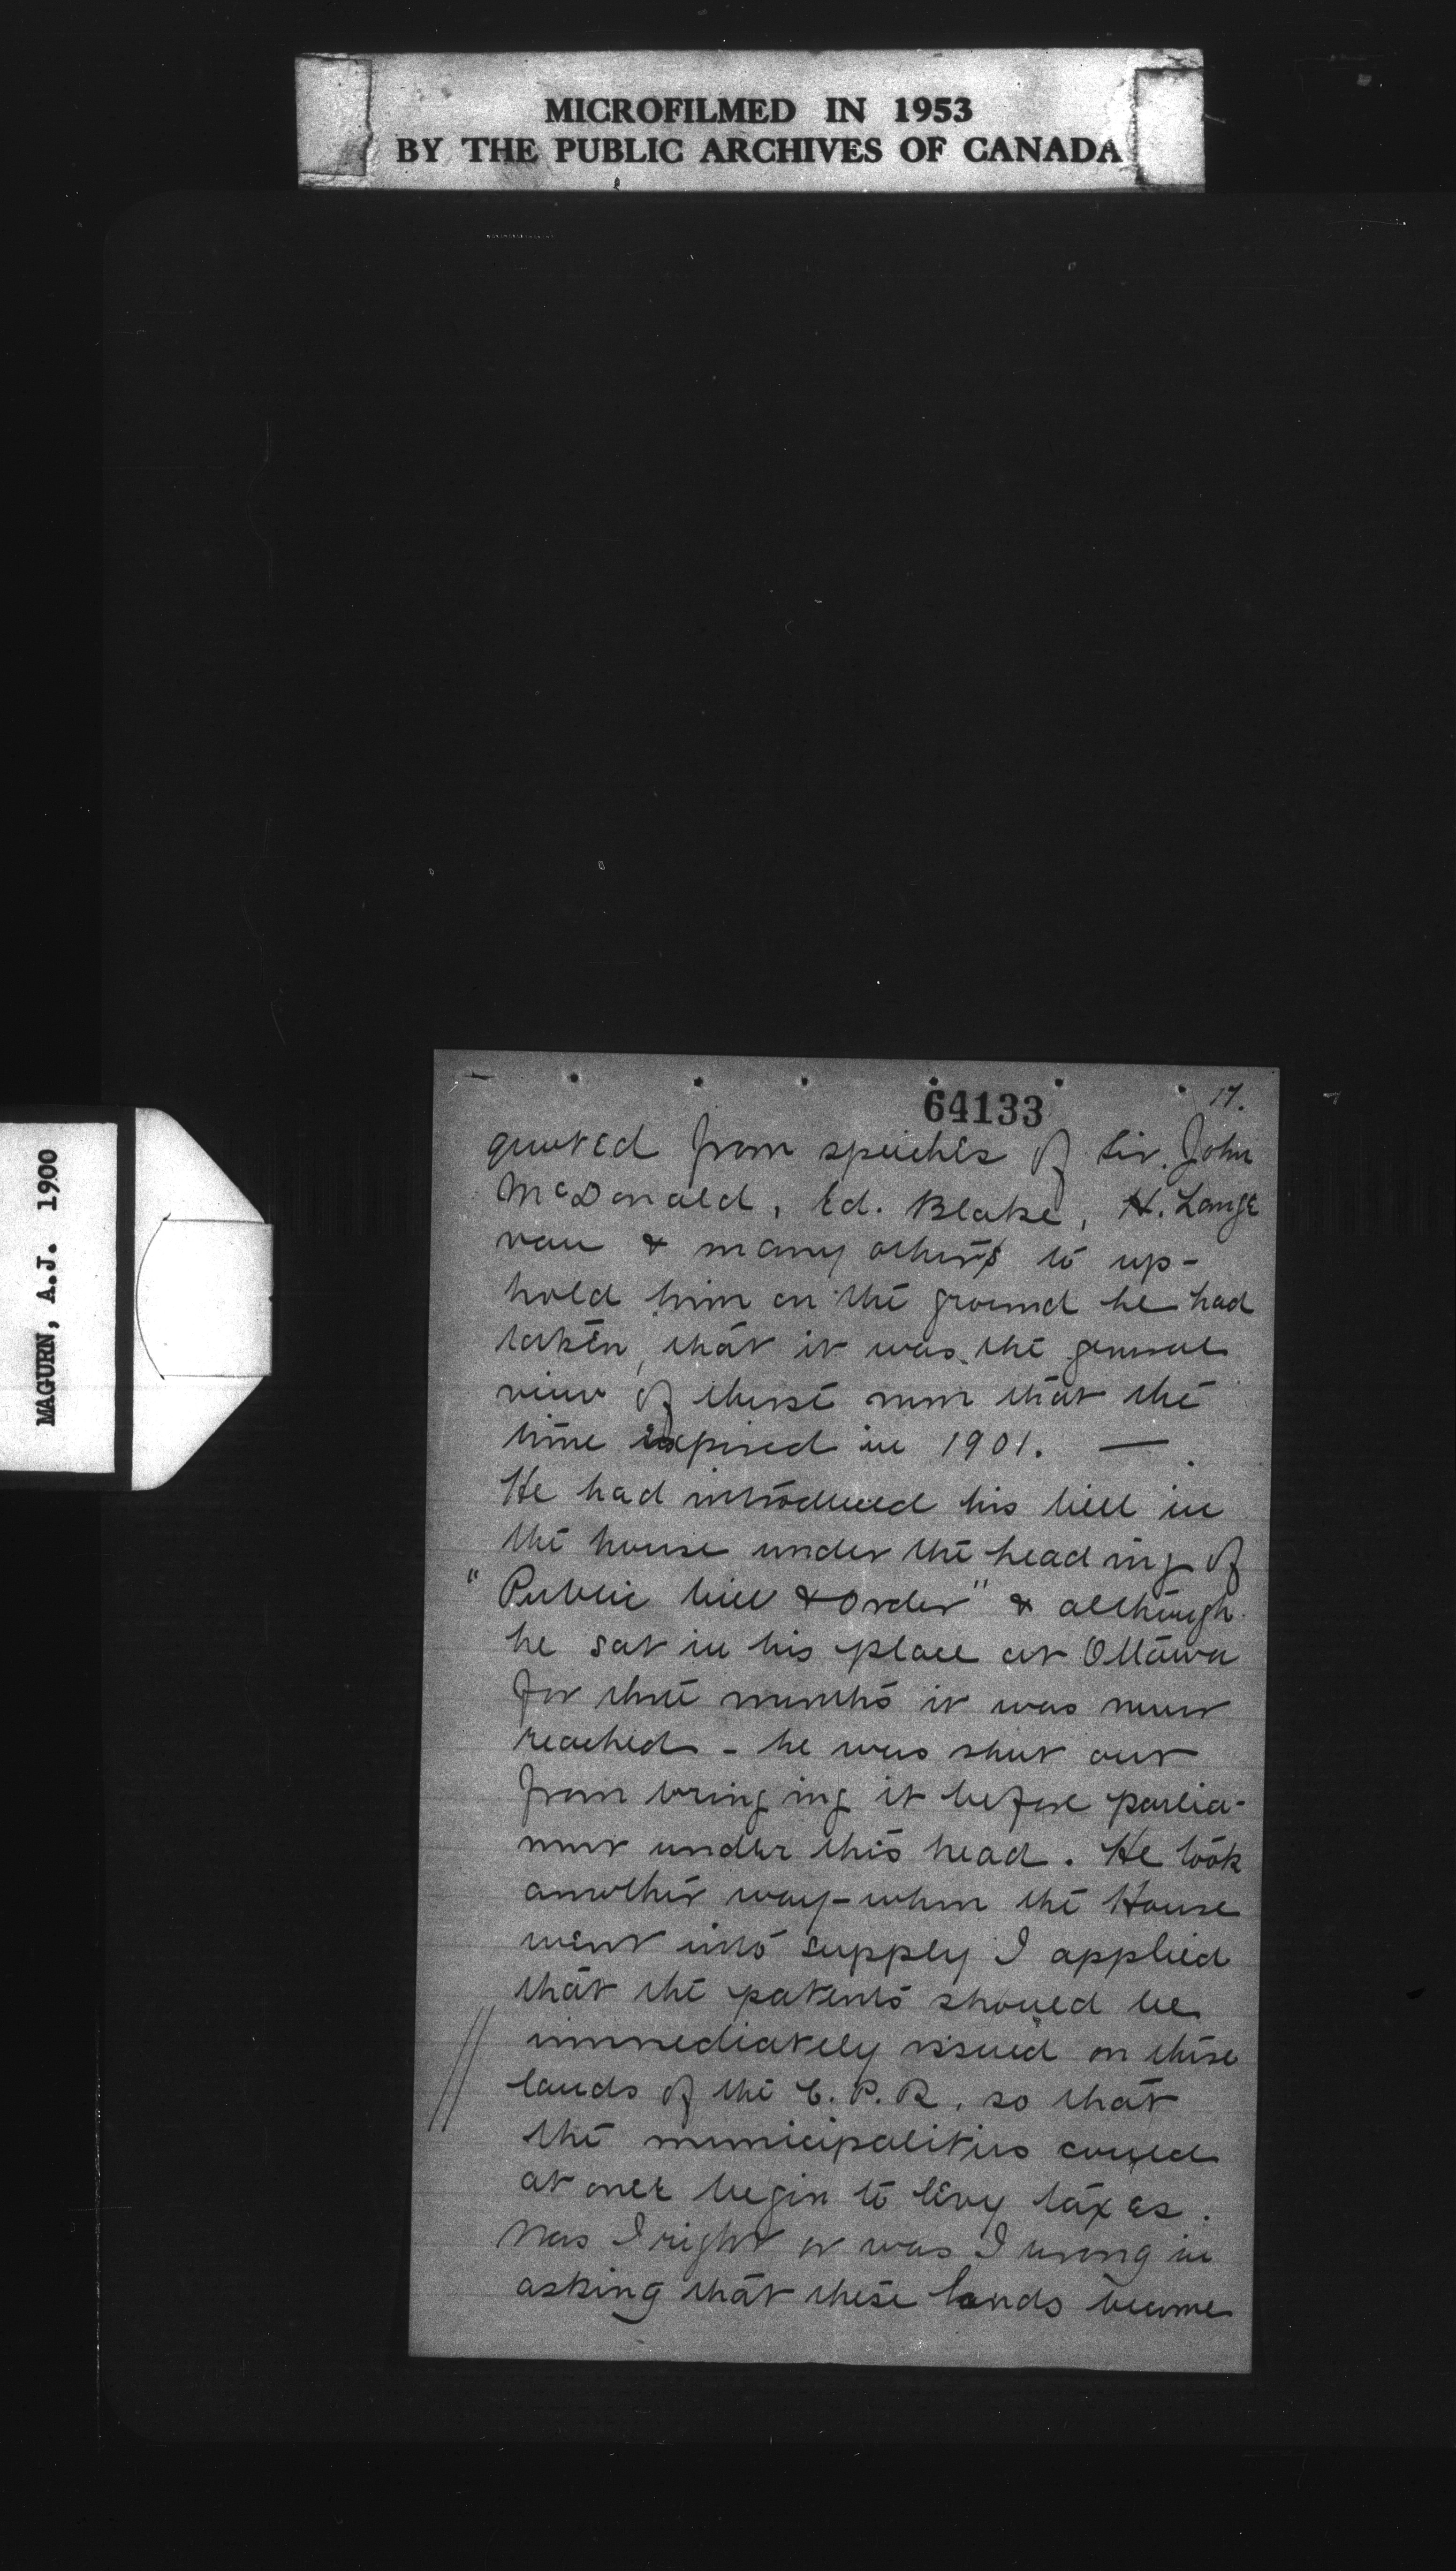 MICROFILMED IN 1953
BY THE PUBLIC ARCHIVES OF CANADA
MAGURN, A.J. 1900
64133
17.
quoted from speeches of Sir. John
McDonald, Ed. Blake, H. Lange
van & many others to up-
hold him on the ground he had
taken, that it was the general
view of these men that the
time expired in 1901. —
He had introduced his bill in
the house under the heading of
"Public bill & Order" & although
he sat in his place at Ottawa
for three months it was never
reached - he was shut out
from bringing it before parlia-
ment under this head. He took
another way - when the House
went into supply I applied
that the patents should be
immediately issued on these
lands of the C.P.R. so that
the municipalities could
at once begin to levy taxes.
Was I right or was I wrong in
asking that these lands become